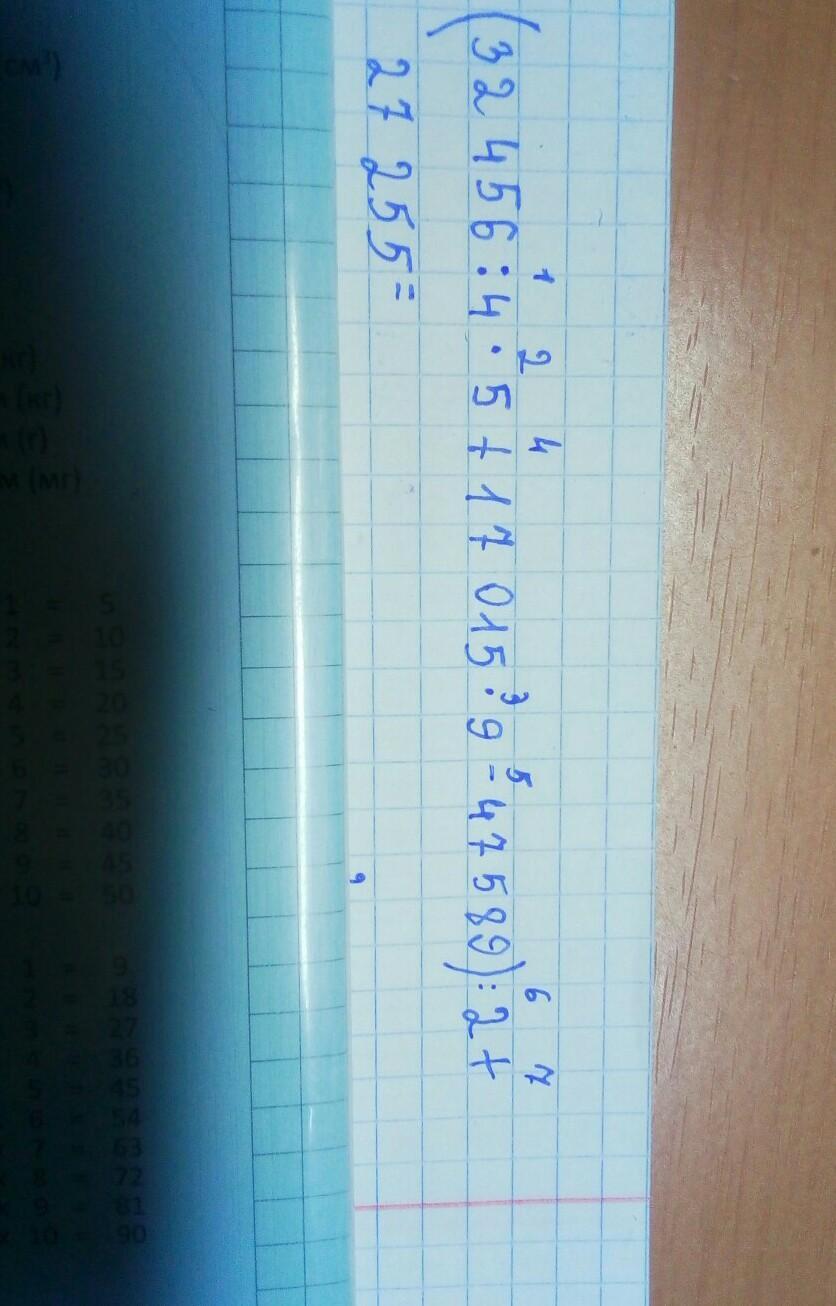 1 2 4 3 5 6 7
(32 456 : 4 · 5 + 17 015 · 9 - 47 589) : 2 +
27 255 =
(см³)
(кг)
(кг)
(г)
м (мг)
1 = 5
2 = 10
3 = 15
4 = 20
5 = 25
6 = 30
7 = 35
8 = 40
9 = 45
10 = 50
1 = 9
2 = 18
3 = 27
4 = 36
5 = 45
6 = 54
7 = 63
8 = 72
9 = 81
10 = 90